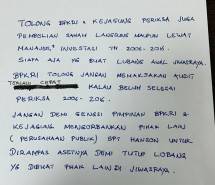 TOLONG BPKRI & KEJAGUNG PERIKSA JUGA
PEMBELIAN SAHAM LANGSUNG MAUPUN LEWAT
MANAJER INVESTASI TH 2006-2016.
SIAPA AJA YG BUAT LUBANG AWAL JIWASRAYA.
BPKRI TOLONG JANGAN MEMAKSAKAN AUDIT
TERLALU CEPAT KALAU BELUM SELESAI
PERIKSA 2006-2016.
JANGAN DEMI GENGSI PIMPINAN BPKRI &
KEJAGUNG MENGORBANKAN PIHAK LAIN
(PERUSAHAAN PUBLIK) SPT HANSON UNTUK
DIRAMPAS ASETNYA DEMI TUTUP LUBANG
YG DIBUAT PIHAK LAIN DI JIWASRAYA.